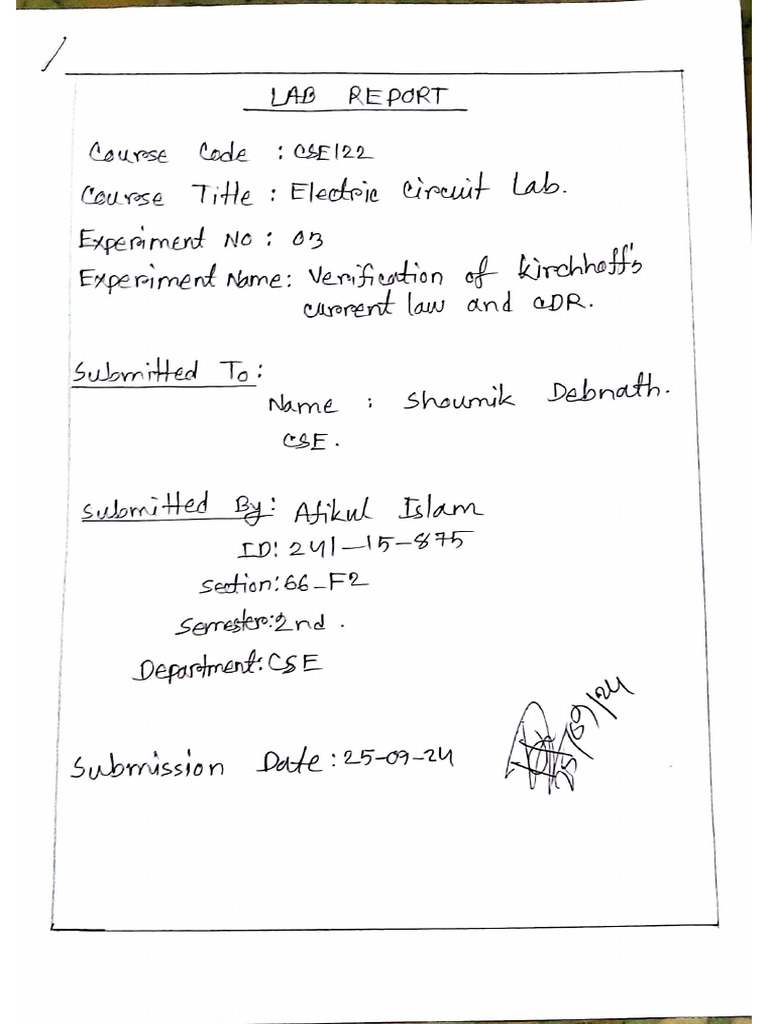 LAB REPORT
Course Code : CSE122
Course Title : Electric Circuit Lab.
Experiment No : 03
Experiment Name: Verification of Kirchhoff's
current law and CDR.
Submitted To:
Name : Shoumik Debnath.
CSE.
Submitted By: Afikul Islam
ID: 241-15-875
Section: 66_F2
Semester: 2nd.
Department: CSE
Submission Date: 25-09-24
25/09/24